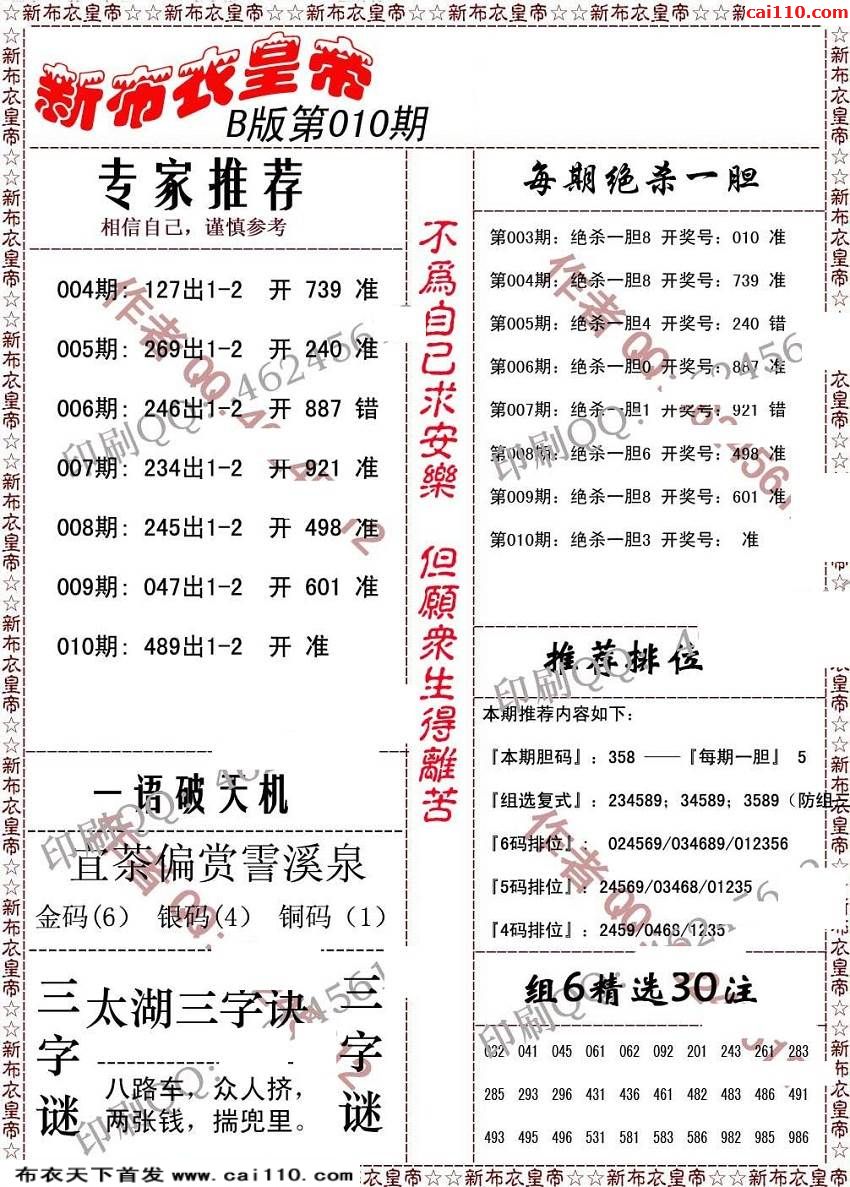 ☆☆新布衣皇帝☆☆新布衣皇帝☆☆新布衣皇帝☆☆新布衣皇帝☆☆新布衣皇帝☆☆
cai110.com
新布衣皇帝
B版第010期
专家推荐
相信自己，谨慎参考
004期: 127出1-2 开 739 准
005期: 269出1-2 开 240 准
006期: 246出1-2 开 887 错
007期: 234出1-2 开 921 准
008期: 245出1-2 开 498 准
009期: 047出1-2 开 601 准
010期: 489出1-2 开 准
不爲自己求安樂 但願衆生得離苦
每期绝杀一胆
第003期: 绝杀一胆8 开奖号: 010 准
第004期: 绝杀一胆8 开奖号: 739 准
第005期: 绝杀一胆4 开奖号: 240 错
第006期: 绝杀一胆0 开奖号: 887 准
第007期: 绝杀一胆1 开奖号: 921 错
第008期: 绝杀一胆6 开奖号: 498 准
第009期: 绝杀一胆8 开奖号: 601 准
第010期: 绝杀一胆3 开奖号: 准
推荐排位
本期推荐内容如下:
『本期胆码』: 358 ——『每期一胆』 5
『组选复式』: 234589; 34589; 3589（防组三
『6码排位』: 024569/034689/012356
『5码排位』: 24569/03468/01235
『4码排位』: 2459/0468/1235
一语破天机
宜茶偏赏霅溪泉
金码(6) 银码(4) 铜码（1）
三字谜
太湖三字诀
八路车，众人挤，
两张钱，揣兜里。
三字谜
组6精选30注
032 041 045 061 062 092 201 243 261 283
285 293 296 431 436 461 482 483 486 491
493 495 496 531 581 583 586 982 985 986
布衣天下首发 www.cai110.com
新布衣皇帝☆☆新布衣皇帝☆☆新布衣皇帝☆☆